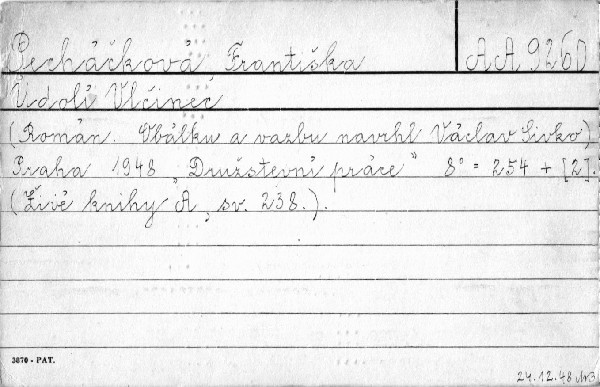 Pecháčková Františka AA 9260
Údolí Vlčinec
(Román. Obálku a vazbu navrhl Václav Sivko)
Praha 1948 „Družstevní práce" 8° = 254 + [2].
(Živé knihy A, sv. 238.).
3670 - PAT.
24.12.48